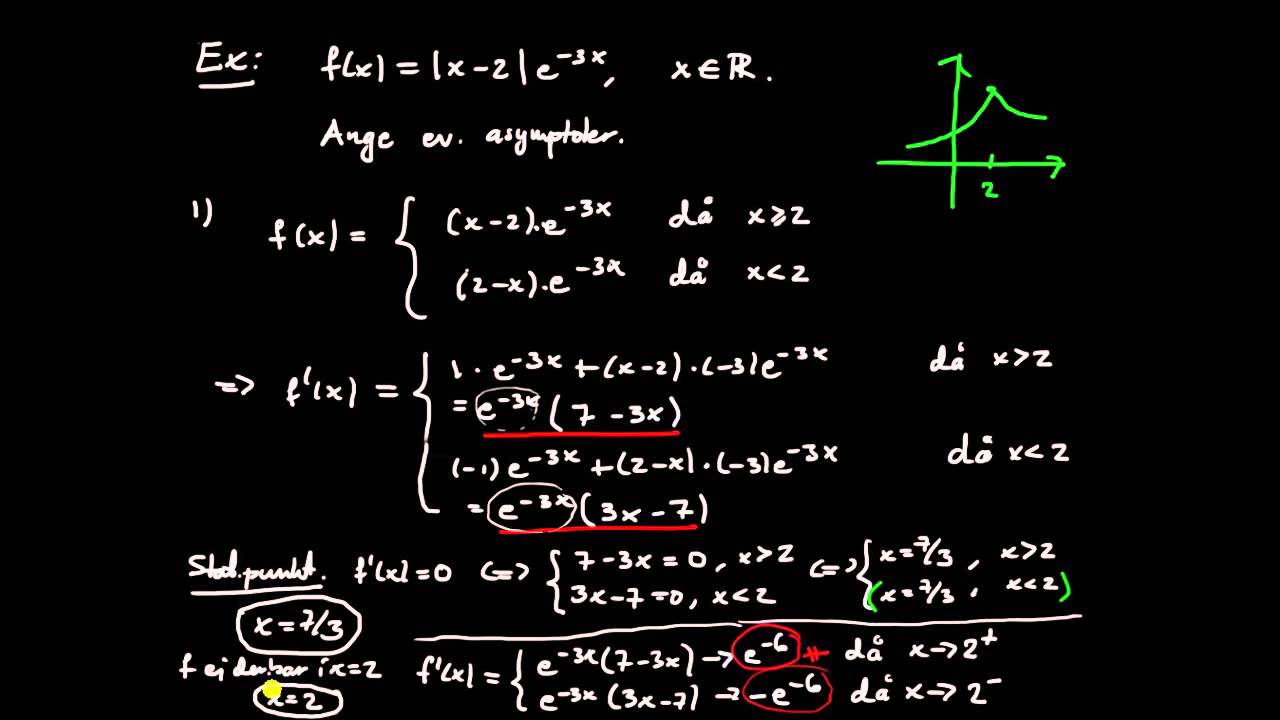 Ex: f(x) = |x-2| e^{-3x}, x ∈ ℝ.
Ange ev. asymptoter.
2
1) f(x) = { (x-2)·e^{-3x} då x≥2
(2-x)·e^{-3x} då x<2
=> f'(x) = { 1·e^{-3x} + (x-2)·(-3)e^{-3x} då x>2
= e^{-3x} (7-3x)
(-1)e^{-3x} + (2-x)·(-3)e^{-3x} då x<2
= e^{-3x} (3x-7)
Stat.punkt. f'(x)=0 <=> { 7-3x=0, x>2 <=> { x=7/3, x>2
3x-7=0, x<2 (x=7/3, x<2)
x=7/3
f ej derbar i x=2 f'(x) = { e^{-3x}(7-3x) → e^{-6} då x→2^+
x=2 e^{-3x}(3x-7) → -e^{-6} då x→2^-